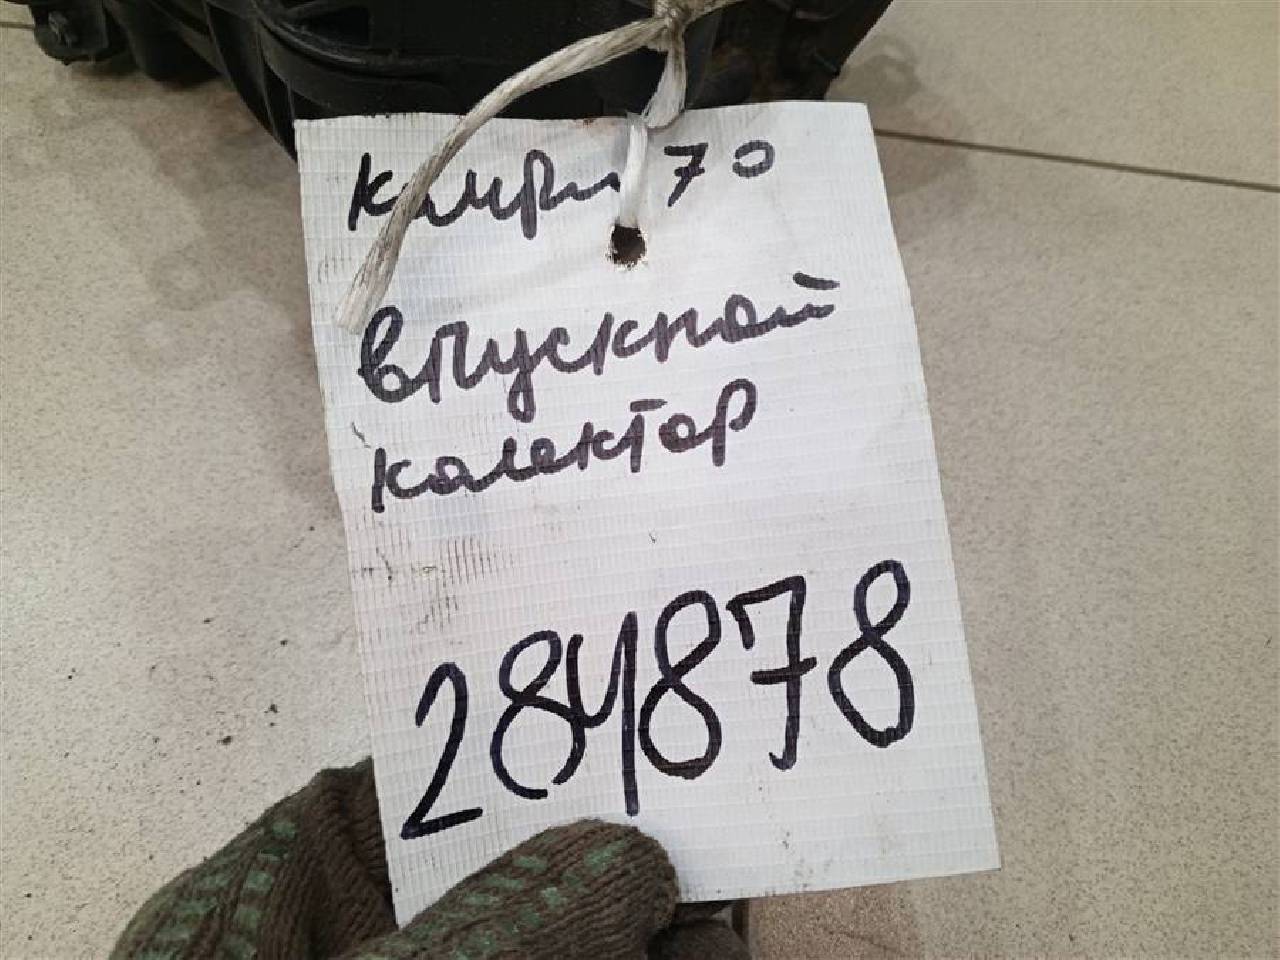 камри 70
впускной
колектор
284878